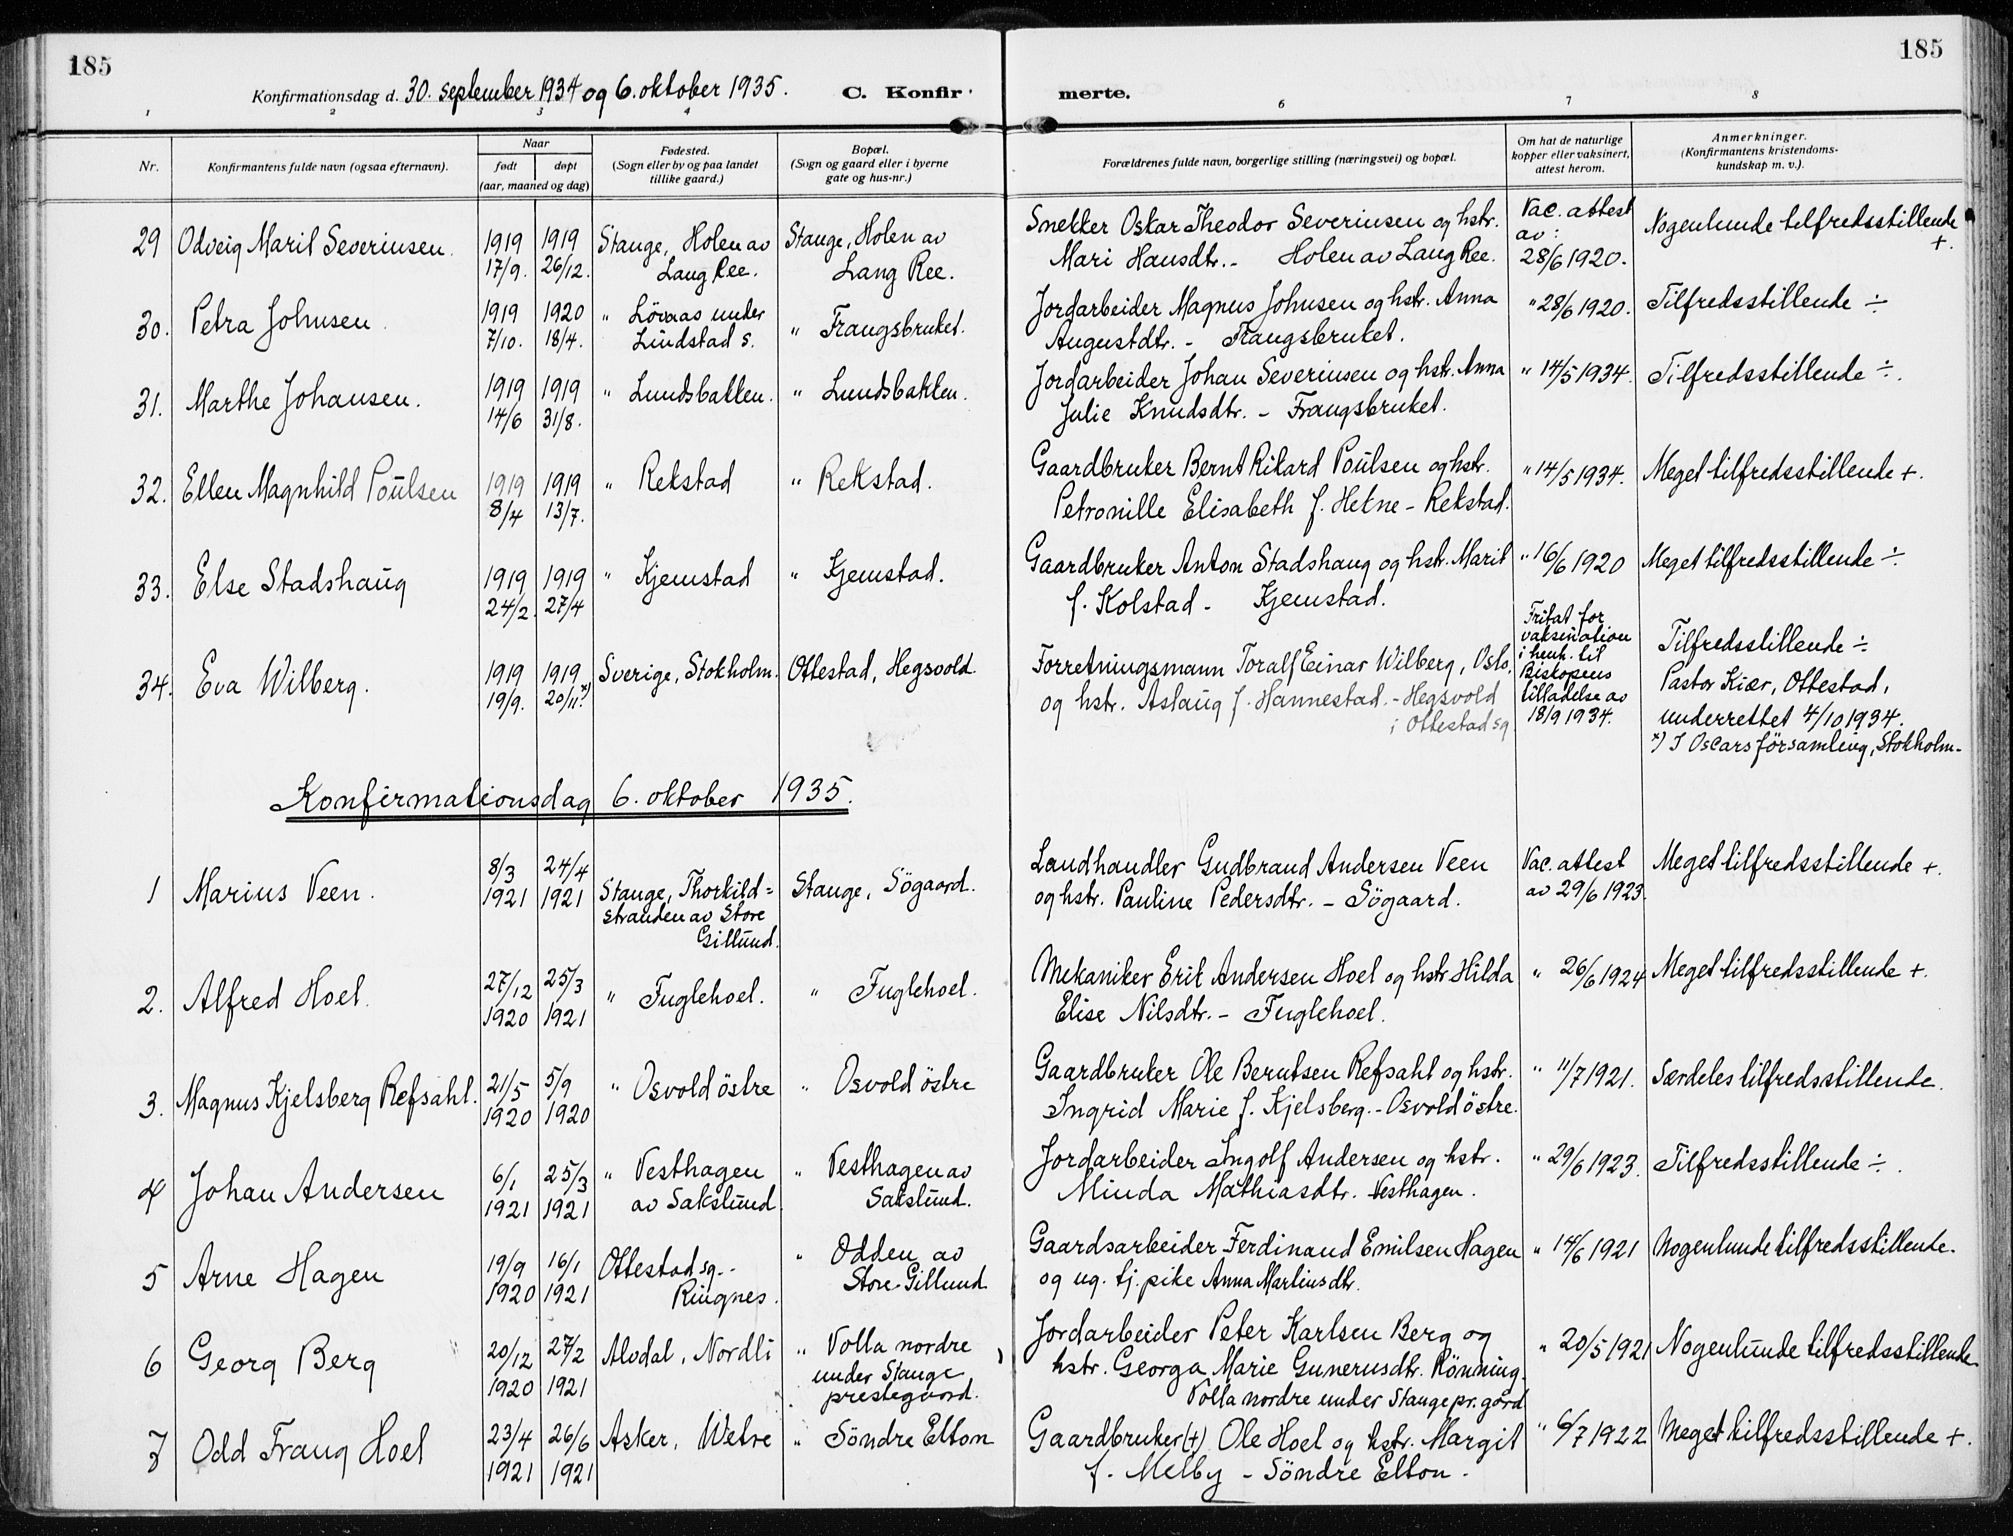 185
185
Konfirmationsdag d. 30. september 1934 og 6. oktober 1935. C. Konfir merte.
1 2 3 4 6 7 8
Nr.
Konfirmantens fulde navn (ogsaa efternavn).
Naar
født døpt
(aar, maaned og dag)
Fødested.
(Sogn eller by og paa landet
tillike gaard.)
Bopæl.
(Sogn og gaard eller i byerne
gate og hus-nr.)
Forældrenes fulde navn, borgerlige stilling (næringsvei) og bopæl.
Om hat de naturlige
kopper eller vaksinert,
attest herom.
Anmerkninger.
(Konfirmantens kristendoms-
kundskap m. v.).
29 Odveig Marit Severinsen. 1919 1919 Stange, Holen av Stange, Holen av Snekker Oskar Theodor Severinsen og hstr. Vac. attest av: Nogenlunde tilfredsstillende +.
17/9. 26/12. Lang Ree. Lang Ree. Mari Hansdtr. - Holen av Lang Ree. 28/6 1920.
30. Petra Johnsen. 1919 1920 " Lövaas under " Frangsbruket. Jordarbeider Magnus Johnsen og hstr. Anna " 28/6 1920. Tilfredsstillende ÷
7/10. 18/4. Lindstad s. Augustdtr. - Frangsbruket.
31. Marthe Johansen. 1919 1919 " Lundsbakken. " Lundsbakken. Jordarbeider Johan Severinsen og hstr. Anna " 14/5 1934. Tilfredsstillende ÷.
14/6 31/8. Julie Knudsdtr. - Frangsbruket.
32. Ellen Magnhild Poulsen 1919 1919 " Rekstad " Rekstad. Gaardbruker Bernt Rikard Poulsen og hstr. " 14/5 1934. Meget tilfredsstillende +.
8/4 13/7. Petronille Elisabeth f. Hekne - Rekstad.
33. Else Stadshaug 1919 1919 " Kjemstad " Kjemstad. Gaardbruker Anton Stadshaug og hstr. Marit " 16/6 1920 Meget tilfredsstillende ÷
24/2. 27/4 f. Kolstad - Kjemstad.
34. Eva Wilberg. 1919 1919 Sverige, Stokholm. Ottestad, Hegsvold Forretningsmann Toralf Einar Wilberg, Oslo,
19/9. 20/11.*) og hstr. Aslaug f. Hannestad. - Hegsvold
i Ottestad sg
Fritat for
vaksination
i henh. til
Biskopens
tilladelse av
18/9 1934.
Tilfredsstillende ÷
Pastor Kiær, Ottestad,
underrettet 4/10 1934.
*) I Oscars församling, Stokholm.
Konfirmationsdag 6. oktober 1935.
1 Marius Veen. 8/3 24/4 Stange, Thorkild= Stange, Sögaard. Landhandler Gudbrand Andersen Veen Vac. attest Meget tilfredsstillende +.
1921 1921 stranden av Store og hstr. Pauline Pedersdtr. - Sögaard. av 29/6 1923.
Gillund.
2. Alfred Hoel. 27/12 25/3 " Fuglehoel. " Fuglehoel. Mekaniker Erik Andersen Hoel og hstr Hilda " 26/6 1924 Meget tilfredsstillende +.
1920 1921 Elise Nilsdtr. - Fuglehoel.
3. Magnus Kjelsberg Refsahl. 21/5 5/9 " Osvold östre " Osvold östre Gaardbruker Ole Berntsen Refsahl og hstr. " 11/7 1921. Særdeles tilfredsstillende.
1920 1920 Ingrid Marie f. Kjelsberg. - Osvold östre.
4 Johan Andersen 6/1 25/3 " Vesthagen " Vesthagen av Jordarbeider Ingolf Andersen og hstr. " 29/6 1923. Tilfredsstillende ÷.
1921 1921 av Sakslund Sakslund. Minda Mathiasdtr. Vesthagen.
5 Arne Hagen 19/9 16/1 Ottestad sg. - " Odden av Gaardsarbeider Ferdinand Emilsen Hagen " 14/6 1921 Nogenlunde tilfredsstillende.
1920 1921 Ringnes. Store Gillund og ug. tj. pike Anna Martinsdtr.
6 Georg Berg 20/12 27/2 Alvdal, Nordli " Volla nordre Jordarbeider Peter Karlsen Berg og " 20/5 1921 Nogenlunde tilfredsstillende
1920 1921 under Stange hstr. Georga Marie Gunerusdtr. Rönning.
prestegaard. Volla nordre under Stange pr. gård
7 Odd Frang Hoel 23/4 26/6 Asker, Wetre " Söndre Elton Gaardbruker (+) Ole Hoel og hstr. Margit " 6/7 1922 Meget tilfredsstillende +.
1921 1921 f. Melby - Söndre Elton.